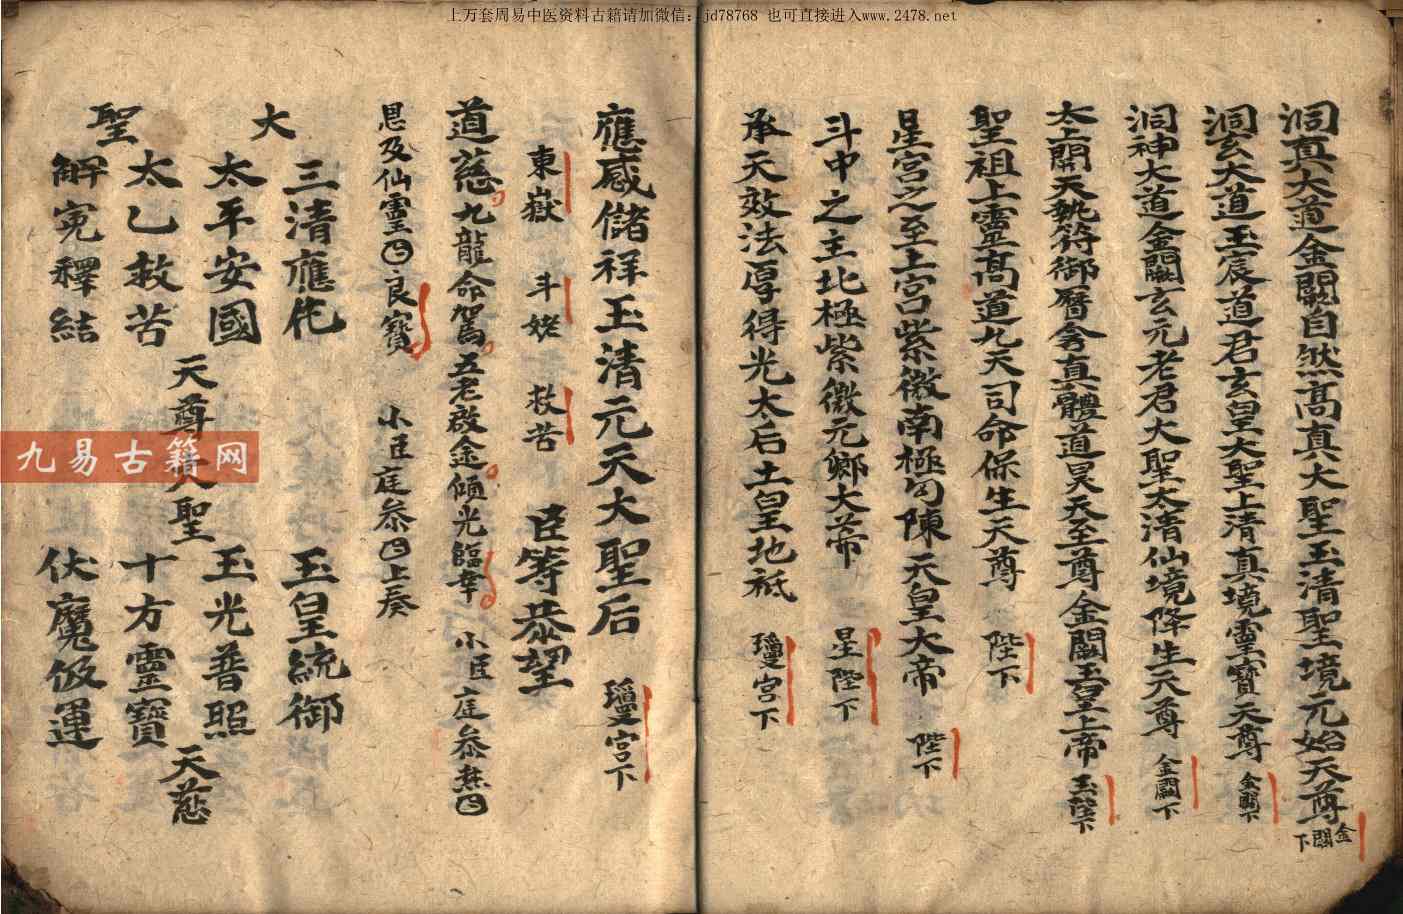 上万套周易中医资料古籍请加微信：jd78768 也可直接进入www.2478.net
洞真大道金闕自然高真大聖玉清聖境元始天尊 金闕下
洞玄大道玉宸道君玄皇大聖上清真境靈寶天尊 金闕下
洞神大道金闕玄元老君大聖太清仙境降生天尊 金闕下
太上開天執符御曆含真體道昊天至尊金闕玉皇上帝 玉陛下
聖祖上靈高道九天司命保生天尊 陛下
星宮之至上宮紫微南極勾陳天皇大帝 陛下
斗中之主北極紫微元鄉大帝 星陛下
承天效法厚得光太后土皇地祇 瓊宮下
應感儲祥玉清元天大聖后 瓊宮下
東嶽 斗姥 救苦 臣等恭望
道慈九龍命駕五老啟途傾光臨幸 小臣庭參
恩及仙靈 良寶 小臣庭參 上奏
大
三清應化 玉皇統御
太平安國 玉光普照
天尊 大聖 天慈
太乙救苦 十方靈寶
聖
解冤釋結 伏魔 運
九易古籍网